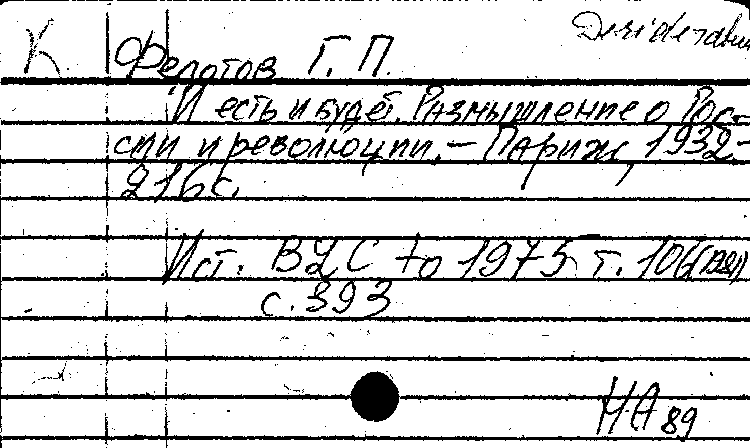 Desiderata
К Федотов Г. П.
И есть и будет. Размышление о Рос-
сии и революции. – Париж, 1932. –
216 с.
Ист. BLC to 1975 т. 106 (1981)
с. 393
НА 89